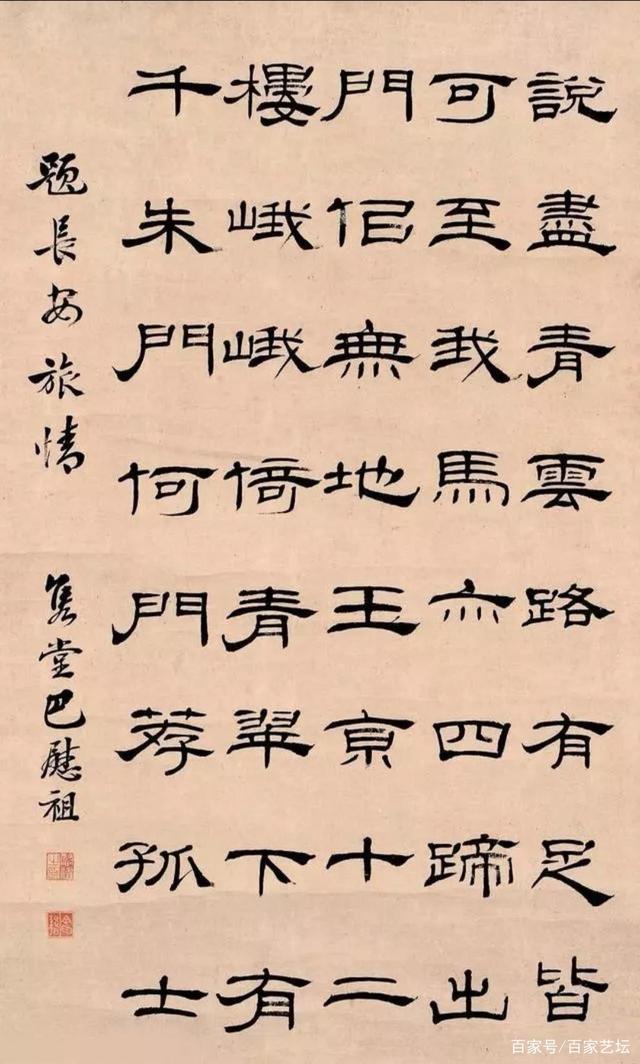 說盡青雲路有足皆
可至我馬亦四蹄出
門佀無地玉京十二
樓峨峨倚青翠下有
千朱門何門荐孤士
題長安旅情 雋堂巴慰祖
百家号/百家艺坛